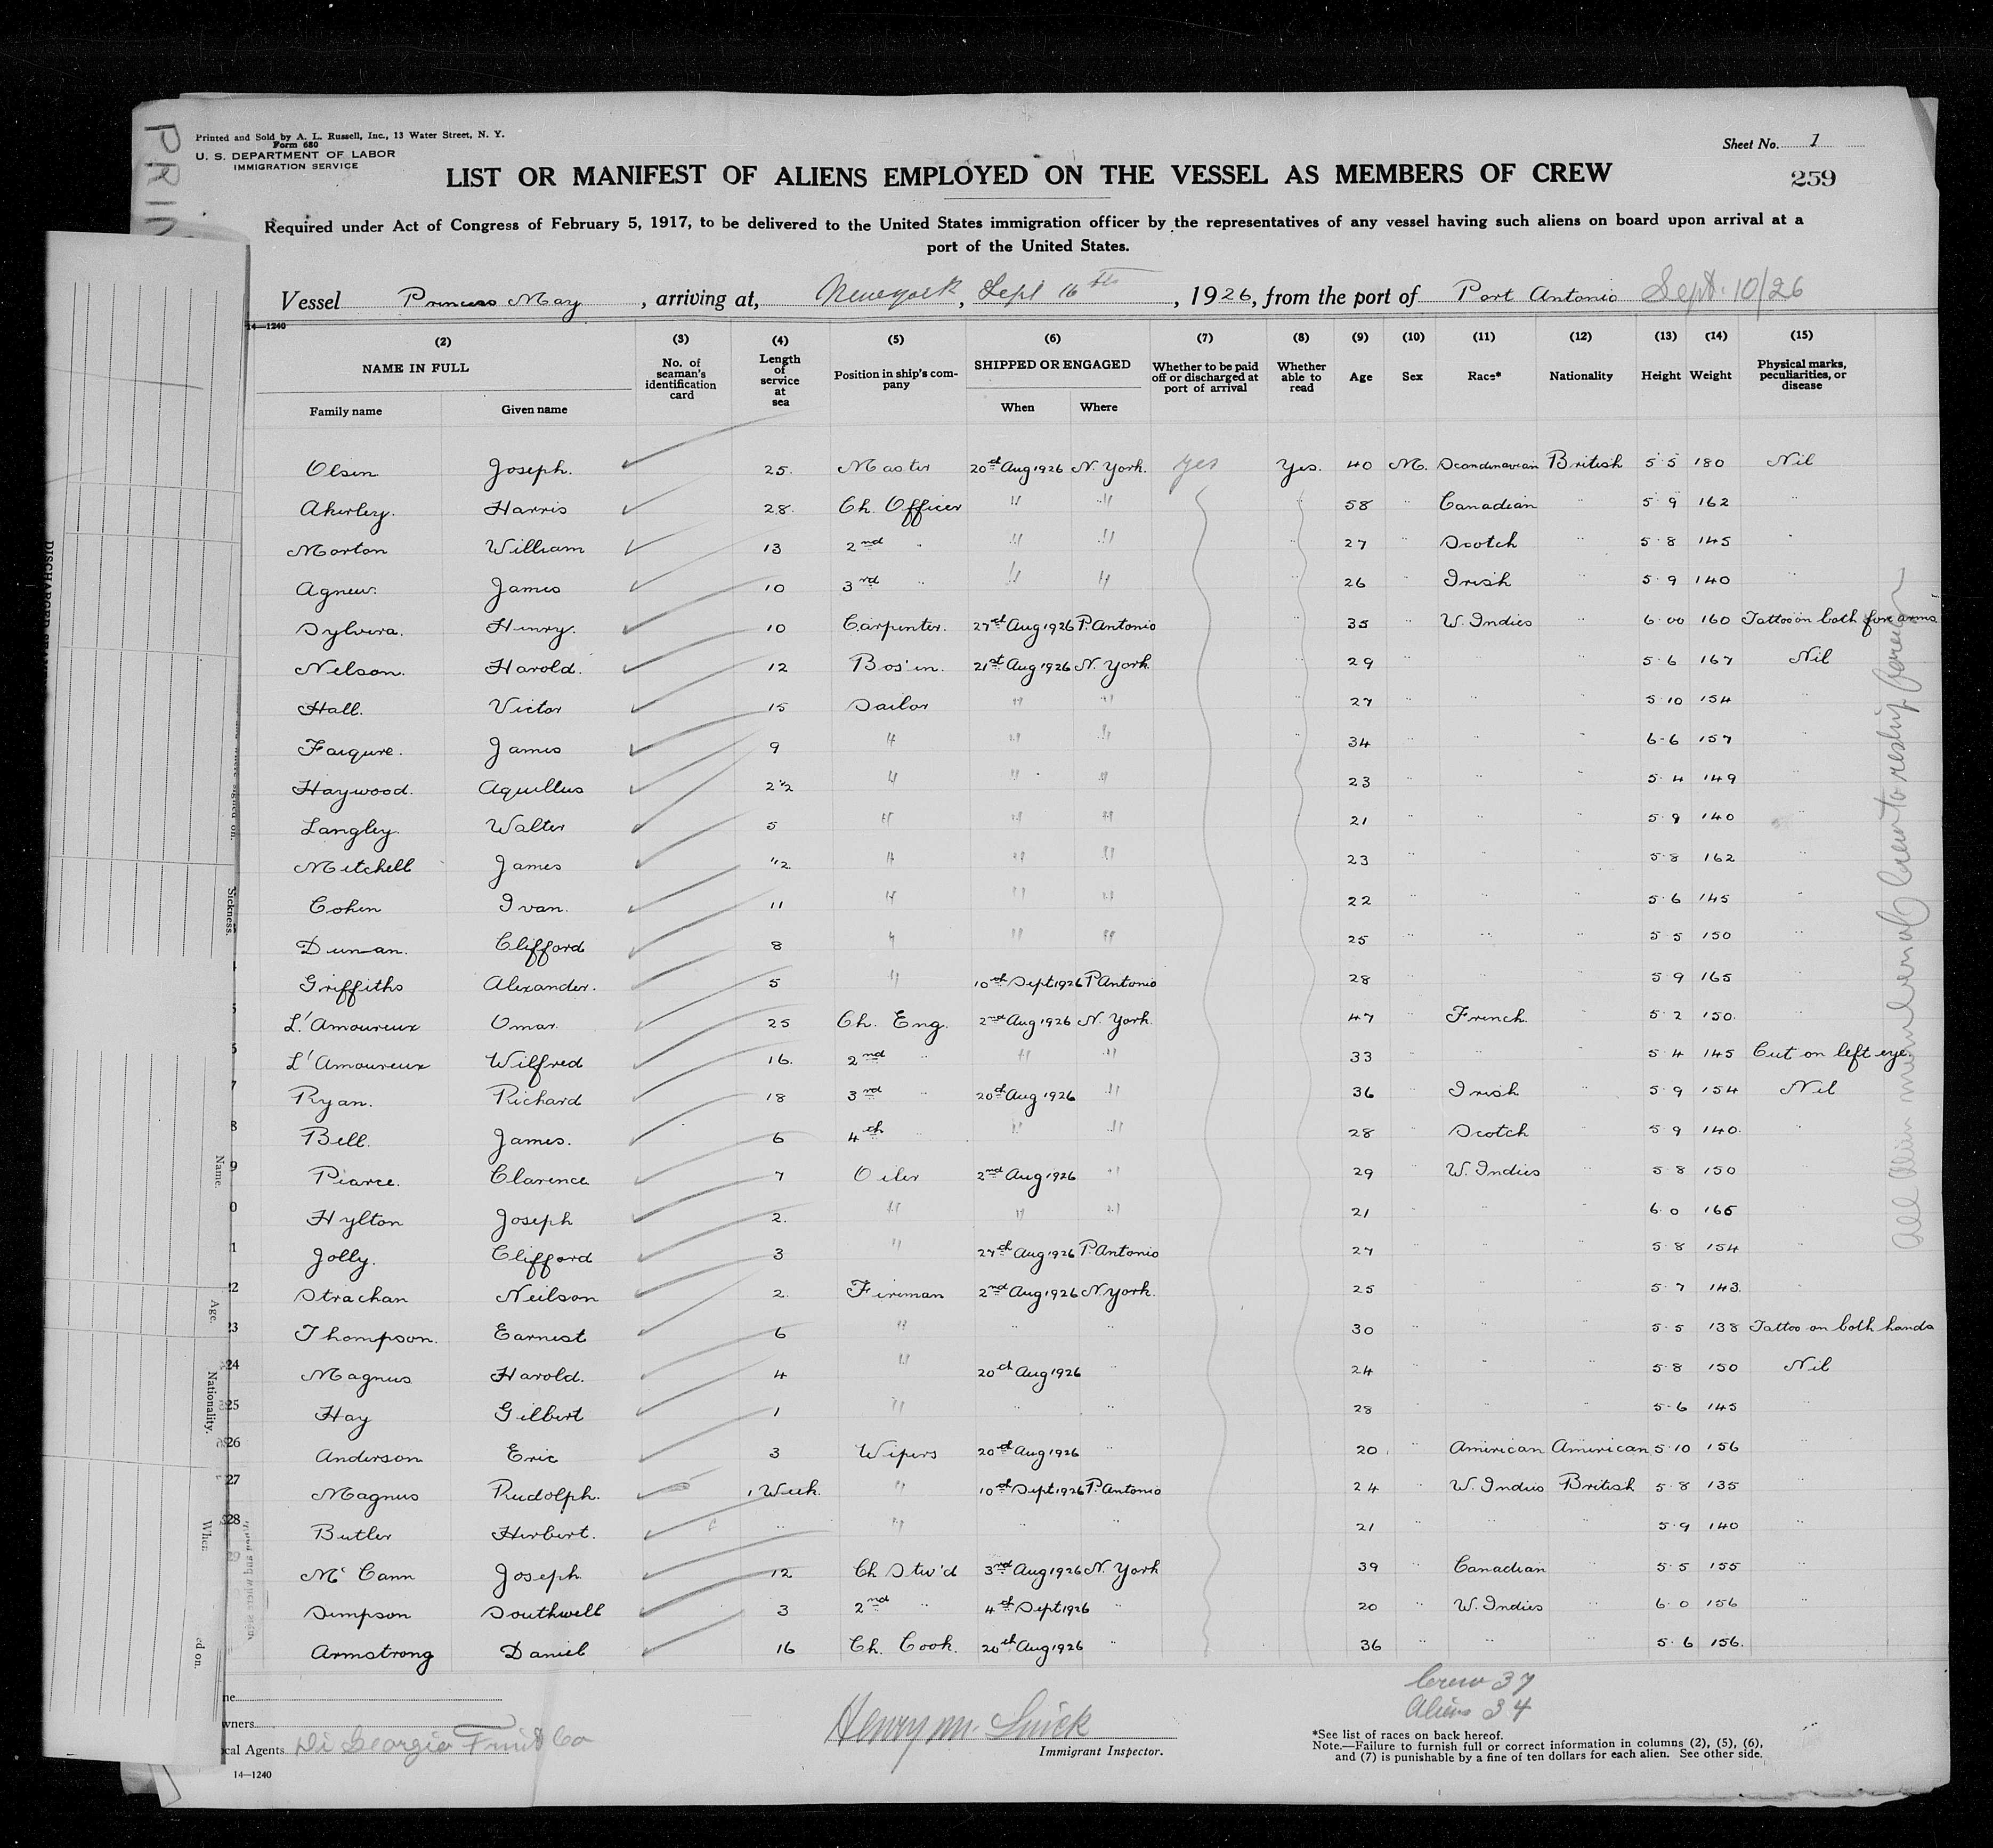 PRIN
Printed and Sold by A. L. Russell, Inc., 13 Water Street, N. Y.
Form 680
U. S. DEPARTMENT OF LABOR
IMMIGRATION SERVICE
Sheet No. 1
259
LIST OR MANIFEST OF ALIENS EMPLOYED ON THE VESSEL AS MEMBERS OF CREW
Required under Act of Congress of February 5, 1917, to be delivered to the United States immigration officer by the representatives of any vessel having such aliens on board upon arrival at a
port of the United States.
Vessel Princess May, arriving at, New york, Sept 16th, 1926, from the port of Port Antonio Sept. 10/26
14—1240
(2) (3) (4) (5) (6) (7) (8) (9) (10) (11) (12) (13) (14) (15)
NAME IN FULL No. of seaman's identification card Length of service at sea Position in ship's company SHIPPED OR ENGAGED Whether to be paid off or discharged at port of arrival Whether able to read Age Sex Race* Nationality Height Weight Physical marks, peculiarities, or disease
Family name Given name When Where
Olsen Joseph. 25. Master 20th Aug 1926 N. York. yes Yes. 40 M. Scandinavian British 5 5 180 Nil
Akerley. Harris 28. Ch. Officer " " 58 " Canadian " 5 9 162 "
Morton William 13 2nd " " " " 27 " Scotch " 5 8 145 "
Agnew. James 10 3rd " " " " 26 " Irish " 5 9 140 "
Sylvera. Henry. 10 Carpenter. 27th Aug 1926 P. Antonio " 35 " W. Indies " 6 00 160 Tattoo on both fore arms
Nelson. Harold. 12 Bos'en. 21st Aug 1926 N. York. " 29 " " " 5 6 167 Nil
Hall. Victor 15 Sailor " " " 27 " " " 5 10 154 "
Faiqure. James 9 " " " " 34 " " " 6-6 157 "
Haywood. Aquillus 2 1/2 " " " 23 " " " 5 4 149 "
Langley. Walter 5 " " " 21 " " " 5 9 140 "
Mitchell James 1/2 " " " 23 " " " 5 8 162 "
Cohen Ivan. 11 " " " 22 " " " 5 6 145 "
Dunan. Clifford 8 " " " 25 " " " 5 5 150 "
Griffiths Alexander. 5 " 10th Sept 1926 P. Antonio 28 " " " 5 9 165 "
L'Amoureux Omar. 25 Ch. Eng. 2nd Aug 1926 N. York. 47 " French. " 5 2 150. "
L'Amoureux Wilfred 16. 2nd " " " 33 " " " 5 4 145 Cut on left eye.
Ryan. Richard 18 3rd " 20th Aug 1926 " 36 " Irish " 5 9 154 Nil
Bell. James. 6 4th " " " 28 " Scotch " 5 9 140. "
Piarce. Clarence 7 Oiler 2nd Aug 1926 " 29 " W. Indies " 5 8 150 "
Hylton Joseph 2. " " " 21 " " " 6 0 165 "
Jolly. Clifford 3 " 27th Aug 1926 P. Antonio 27 " " " 5 8 154 "
Strachan Neilson 2 Fireman 2nd Aug 1926 N York. 25 " " " 5 7 143. "
Thompson. Earnest 6 " " " 30 " " " 5 5 138 Tattoo on both hands
Magnus Harold. 4 " 20th Aug 1926 " 24 " " " 5 8 150 Nil
Hay Gilbert 1 " " " 28 " " " 5-6 145 "
Anderson Eric 3 Wipers 20th Aug 1926 " 20 " American American 5 10 156 "
Magnus Rudolph. 1 Week. " 10th Sept 1926 P. Antonio 24 " W. Indies British 5 8 135 "
Butler Herbert. " " " " 21 " " " 5 9 140 "
McCann Joseph 12 Ch Stw'd 3rd Aug 1926 N. York 39 " Canadian " 5 5 155 "
Simpson Southwell 3 2nd " 4th Sept 1926 " 20 " W. Indies " 6 0 156 "
Armstrong Daniel 16 Ch. Cook. 20th Aug 1926 " 36 " " " 5 6 156. "
All Alien members of Crew to reship foreign
Sickness.
Name.
Age.
Nationality.
When
ed on.
Crew 37
Aliens 34
ne
wners
cal Agents Di Georgio Fruit Co
Henry M.
Immigrant Inspector.
*See list of races on back hereof.
Note.—Failure to furnish full or correct information in columns (2), (5), (6),
and (7) is punishable by a fine of ten dollars for each alien. See other side.
14—1240